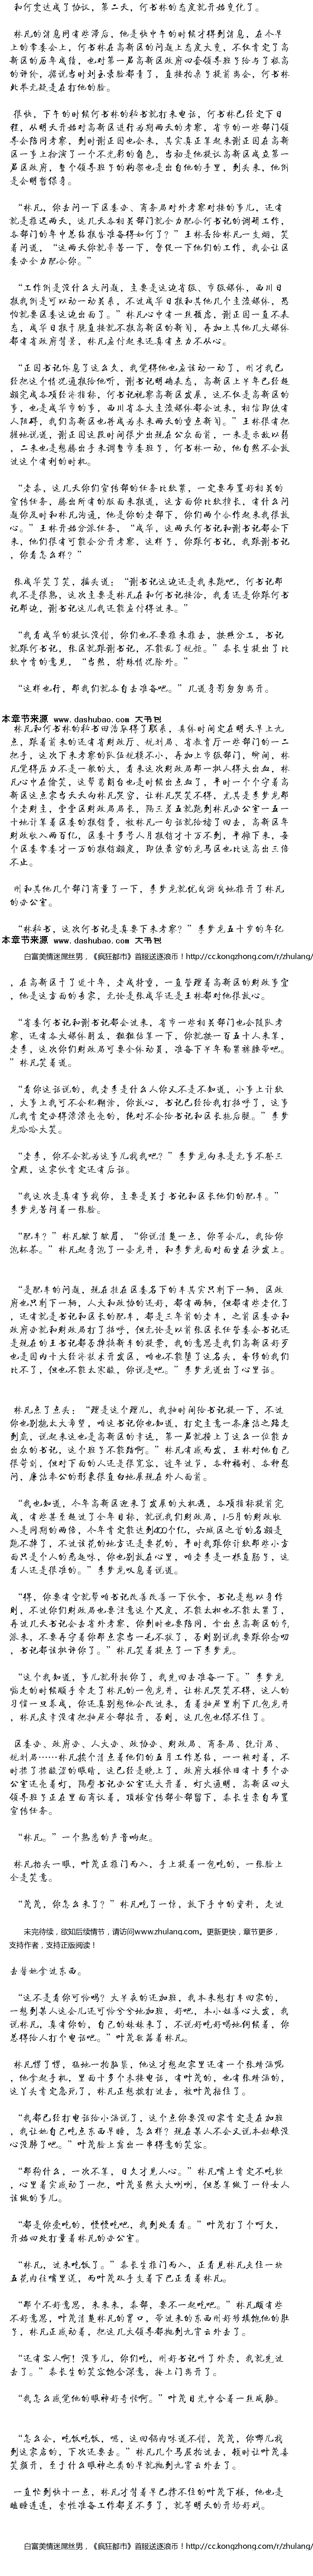 和何雯达成了协议，第二天，何书林的态度就开始变化了。
林凡的消息网有些滞后，他是快中午的时候才得到消息，在今早
上的常委会上，何书林在高新区的问题上态度大变，不仅肯定了高
新区的历年成绩，也对第一届高新区政府四套领导班子给与了极高
处举无疑是在打他的脸。
很快，下午的时候何书林的秘书就打来电话，何书林已经定下日
程，从明天开始对高新区进行为期两天的考察，省市的一些部门领
导会陪同考察，到时谢正因也会来，其实真正算起来谢正因在高新
区一事上扮演了一个不光彩的角色，当初是他提议高新区成立第一
届区政府，整个领导班子的构架也是出自他的手里，到头来，他倒
是会明哲保身。
“林凡，你去问一下区委办、商务局对外考察对接的事儿，还有
就是推迟两天，这几天各相关部门就全力配合何书记的调研工作，
各部门的年中总结报告准备得如何了？”王林丢给林凡一支烟，笑
着问道，“这两天你就辛苦一下，督促一下他们的工作，我会让区
委办全力配合你。”
“工作倒是没什么大问题，主要是这边省级、市级媒体，西川日
报我倒是可以动一动关系，不过成华日报和其他几个主流媒体，恐
怕就要区委这边出面了。”林凡心中有一丝顾虑，谢正因一直不表
态，成华日报干脆直接就不报高新区的新闻，再加上其他几大媒体
都有省政府背景，林凡应付起来还真有点力不从心。
“正因书记休息了这么久，我觉得他也应该动一动了，刚才我已
经把这个情况通报给他听，谢书记明确表态，高新区上半年已经超
额完成各项经济指标，何书记视察高新区发展，这不仅是高新区的
事，也是成华市的事，西川省各大主流媒体都会过来，相信即使有
人阻碍，我们高新区也将成为未来两天的重点新闻。”王林很有把
握地说道，谢正因这段时间很少出现在公众面前，一来是示敌以弱
，二来也是想腾出手来调整市委班子，何书林一动，他自然不会放
过这个有利的时机。
“老秦，这几天你们宣传部的任务比较重，一定要布置好相关的
宣传任务，腾出所有的版面来报道，这方面你比较擅长，有什么问
题你及时和林凡沟通，他是你的老部下，你们两个合作起来我很放
心。”王林开始分派任务，“成华，这两天何书记和谢书记都会下
来，他们很有可能会分开考察，这样子，你跟何书记，我跟谢书记
，你看怎么样？”
张成华笑了笑，摇头道：“谢书记这边还是我来跑吧，何书记那
我不是很熟，这次主要是林凡在和何书记接洽，我看还是你跟何书
记那边，谢书记这儿我还能应付得过来。”
“我看成华的提议没错，你们也不要推来推去，按照分工，书记
就跟何书记，张区就跟谢书记，不能乱了规矩。”秦长生提出了比
较中肯的意见，“当然，特殊情况除外。”
“这样也行，那我们就各自去准备吧。”几道身影匆匆离开。
本章节来源 www.dashubao.com 大书包
林凡和何书林的秘书田浩取得了联系，具体时间定在明天早上九
点，跟着前来的还有省财政厅、规划局、省教育厅一些部门的一二
把手，这次下来考察的队伍规模不小，再加上市级部门，瞬间，林
凡觉得压力不是一般的大，看来这次财政局那一批人得大出血，林
的办公室。
“林秘书，这次何书记是真要下来考察？”李梦龙五十岁的年纪
本章节来源 www.dashubao.com 大书包
白富美情迷屌丝男，《疯狂都市》首服送逐浪币！http://cc.kongzhong.com/r/zhulang/
，在高新区干了近十年，老成持重，一直管理着高新区的财政事宜
，他是这方面的专家，无论是张成华还是王林都对他很放心。
“省委何书记和谢书记都会过来，省市一些相关部门也会随队考
察，还有各大媒体朋友，粗粗估算一下，你就按一百五十人来算，
老李，这次你们财政局可要全体动员，准备下半年勒紧裤腰带吧。”
林凡笑着道。
“看你这话说的，我老李是什么人你又不是不知道，小事上计较
，大事上我可不会犯糊涂，你放心，书记已经给我打招呼了，这事
儿我肯定办得漂漂亮亮的，绝对不会给书记和区长拖后腿。”李梦
龙哈哈大笑。
“老李，你不会就为这事儿找我吧？”李梦龙向来是无事不登三
宝殿，这家伙肯定还有后话。
“我这次是真有事找你，主要是关于书记和区长他们的配车。”
李梦龙苦闷着一张脸。
“配车？”林凡皱了皱眉，“你说清楚一点，你等会儿，我给你
泡杯茶。”林凡起身泡了一壶龙井，和李梦龙面对面坐在沙发上。
“是配车的问题，现在挂在区委名下的车其实只剩下一辆，区政
府也只剩下一辆，人大和政协的还好，都有两辆，但都有些老化了
，还有就是书记和区长的配车，都是三年前的老车，之前区委办和
政府办就和财政局打了招呼，但无论是以前张区长任管委会书记还
是现在的王书记都否掉换新车的提案，我的意思是我们高新区好歹
也是国内十大经济技术开发区，咱也不能堕了这名头，奢侈的我们
比不了，但也不能太寒酸，你说是吧。”李梦龙道出了心里话。
林凡点了点头：“理是这个理儿，我抽时间给书记提一下，不过
你也别抱太大希望，咱这书记你也知道，打定主意一条廉洁之路走
到底，说起来这也是高新区的幸运，第一届就摊上了这么一位能力
出众的书记，这个班子不能踏啊。”林凡有感而发，王林对他自己
很苛刻，但对下面的人还是很宽容，逢年过节，各种福利、各种慰
问，廉洁奉公的形象很直白地展现在外人面前。
“我也知道，今年高新区迎来了发展的大机遇，各项指标提前完
成，有些甚至超过了今年目标，就说我们财政局，1-5月的财政收
入是同期的两倍，今年肯定能达到400个亿，六城区之首的名额是
跑不掉了，不过该花的地方还是要花的，平时我跟你计较那些小方
面只是个人的恶趣味，你也别放在心里，咱老李是一根直肠子，这
看人还是很准的。”李梦龙叹息着说道。
“得，你要有空就帮咱书记改善改善一下伙食，书记是想以身作
则，不过你们财政局也要注意这个尺度，不能太松也不能太紧了，
再过几天书记会去省外考察，你到时也要陪同，拿出点高新区的气
派来，不要再守着你那点家当一毛不拔了，否则别说我要跟你念叨
，书记都该批评你了。”林凡笑着提点了一下李梦龙。
“这个我知道，事儿就拜托你了，我先回去准备一下。”李梦龙
临走的时候顺手牵走了林凡的一包龙井，让林凡哭笑不得，这人的
习惯一旦养成，你还真别想他会改过来，看着抽屉里剩下几包龙井
，林凡庆幸没有把抽屉全部拉开，否则，这几包也保不住了。
区委办、政府办、人大办、政协办、财政局、商务局、统计局、
规划局……林凡挨个清点着他们的五月工作总结，一一核对着，不
时揉了揉酸涩的眼睛，这已经是晚上了，政府大楼依旧有十多个办
公室还亮着灯，隔壁书记办公室还大开着，灯火通明，高新区四大
领导班子正在里面商议着，顶楼宣传部全部留下，秦长生亲自布置
宣传任务。
“林凡。”一个熟悉的声音响起。
林凡抬头一眼，叶茂正推门而入，手上提着一包吃的，一张脸上
全是笑意。
“茂茂，你怎么来了？”林凡吃了一惊，放下手中的资料，走过
未完待续，欲知后续情节，请访问www.zhulang.com。更新更快，章节更多，
支持作者，支持正版阅读！
去替她拿过东西。
“这不是看你可怜吗？大半夜的还加班，我本来想打车回家的，
一想到某人这会儿还可怜兮兮地加班，好吧，本小姐善心大发，我
说林凡，真有你的，自己的妹妹来了，不说好吃好喝地伺候着，你
总得给人打个电话吧。”叶茂歌着着林凡。
林凡愣了愣，猛地一拍脑袋，他这才想起家里还有一个张靖涵呢
，他拿起手机，里面十多个未接电话，有叶茂的，也有张靖涵的，
这丫头肯定急死了，林凡正想拨打过去，被叶茂拦住了。
“我都已经打电话给小涵说了，这个点你要没回家肯定是在加班
，我让她自己吃点东西早睡，怎么样？现在某人不会又说本姑娘没
心没肺了吧。”叶茂脸上露出一串得意的笑容。
“那狗什么，一次不算，日久才见人心。”林凡嘴上肯定不吃软
，心里着实感动了一把，叶茂虽然大大咧咧，但总算做了一件女人
该做的事儿。
“都是你爱吃的，慢慢吃吧，我到处看看。”叶茂打了个呵欠，
开始四处打量着林凡的办公室。
“林凡，过来吃饭了。”秦长生推门而入，正看见林凡夹住一块
五花肉往嘴里送，而叶茂双手支着下巴正看着林凡。
“那个不好意思，来来来，秦部，要不一起吃吧。”林凡颇有些
不好意思，叶茂清楚林凡的胃口，带过来的东西刚好够填饱他的肚
子，林凡正感动着，把这几大领导都抛到九霄云外去了。
“还有客人啊！没事儿，你们吃，刚好书记叫了外卖，我就先过
去了。”秦长生的笑容饱含深意，接上门离开了。
“我怎么感觉他的眼神好奇怪啊。”叶茂目光中含着一丝威胁。
“怎么会，吃饭吃饭，嗯，这回锅肉味道不错，茂茂，你哪儿找
到这家店的，下次还要去。”林凡几个马屁拍过去，顿时让叶茂喜
笑颜开，至于什么眼神之类的早就抛到九霄云外去了。
一直忙到快十一点，林凡才背着早已撑不住的叶茂下楼，他也是
瞌睡连连，索性准备工作都差不多了，就等明天的开场好戏。
白富美情迷屌丝男，《疯狂都市》首服送逐浪币！http://cc.kongzhong.com/r/zhulang/